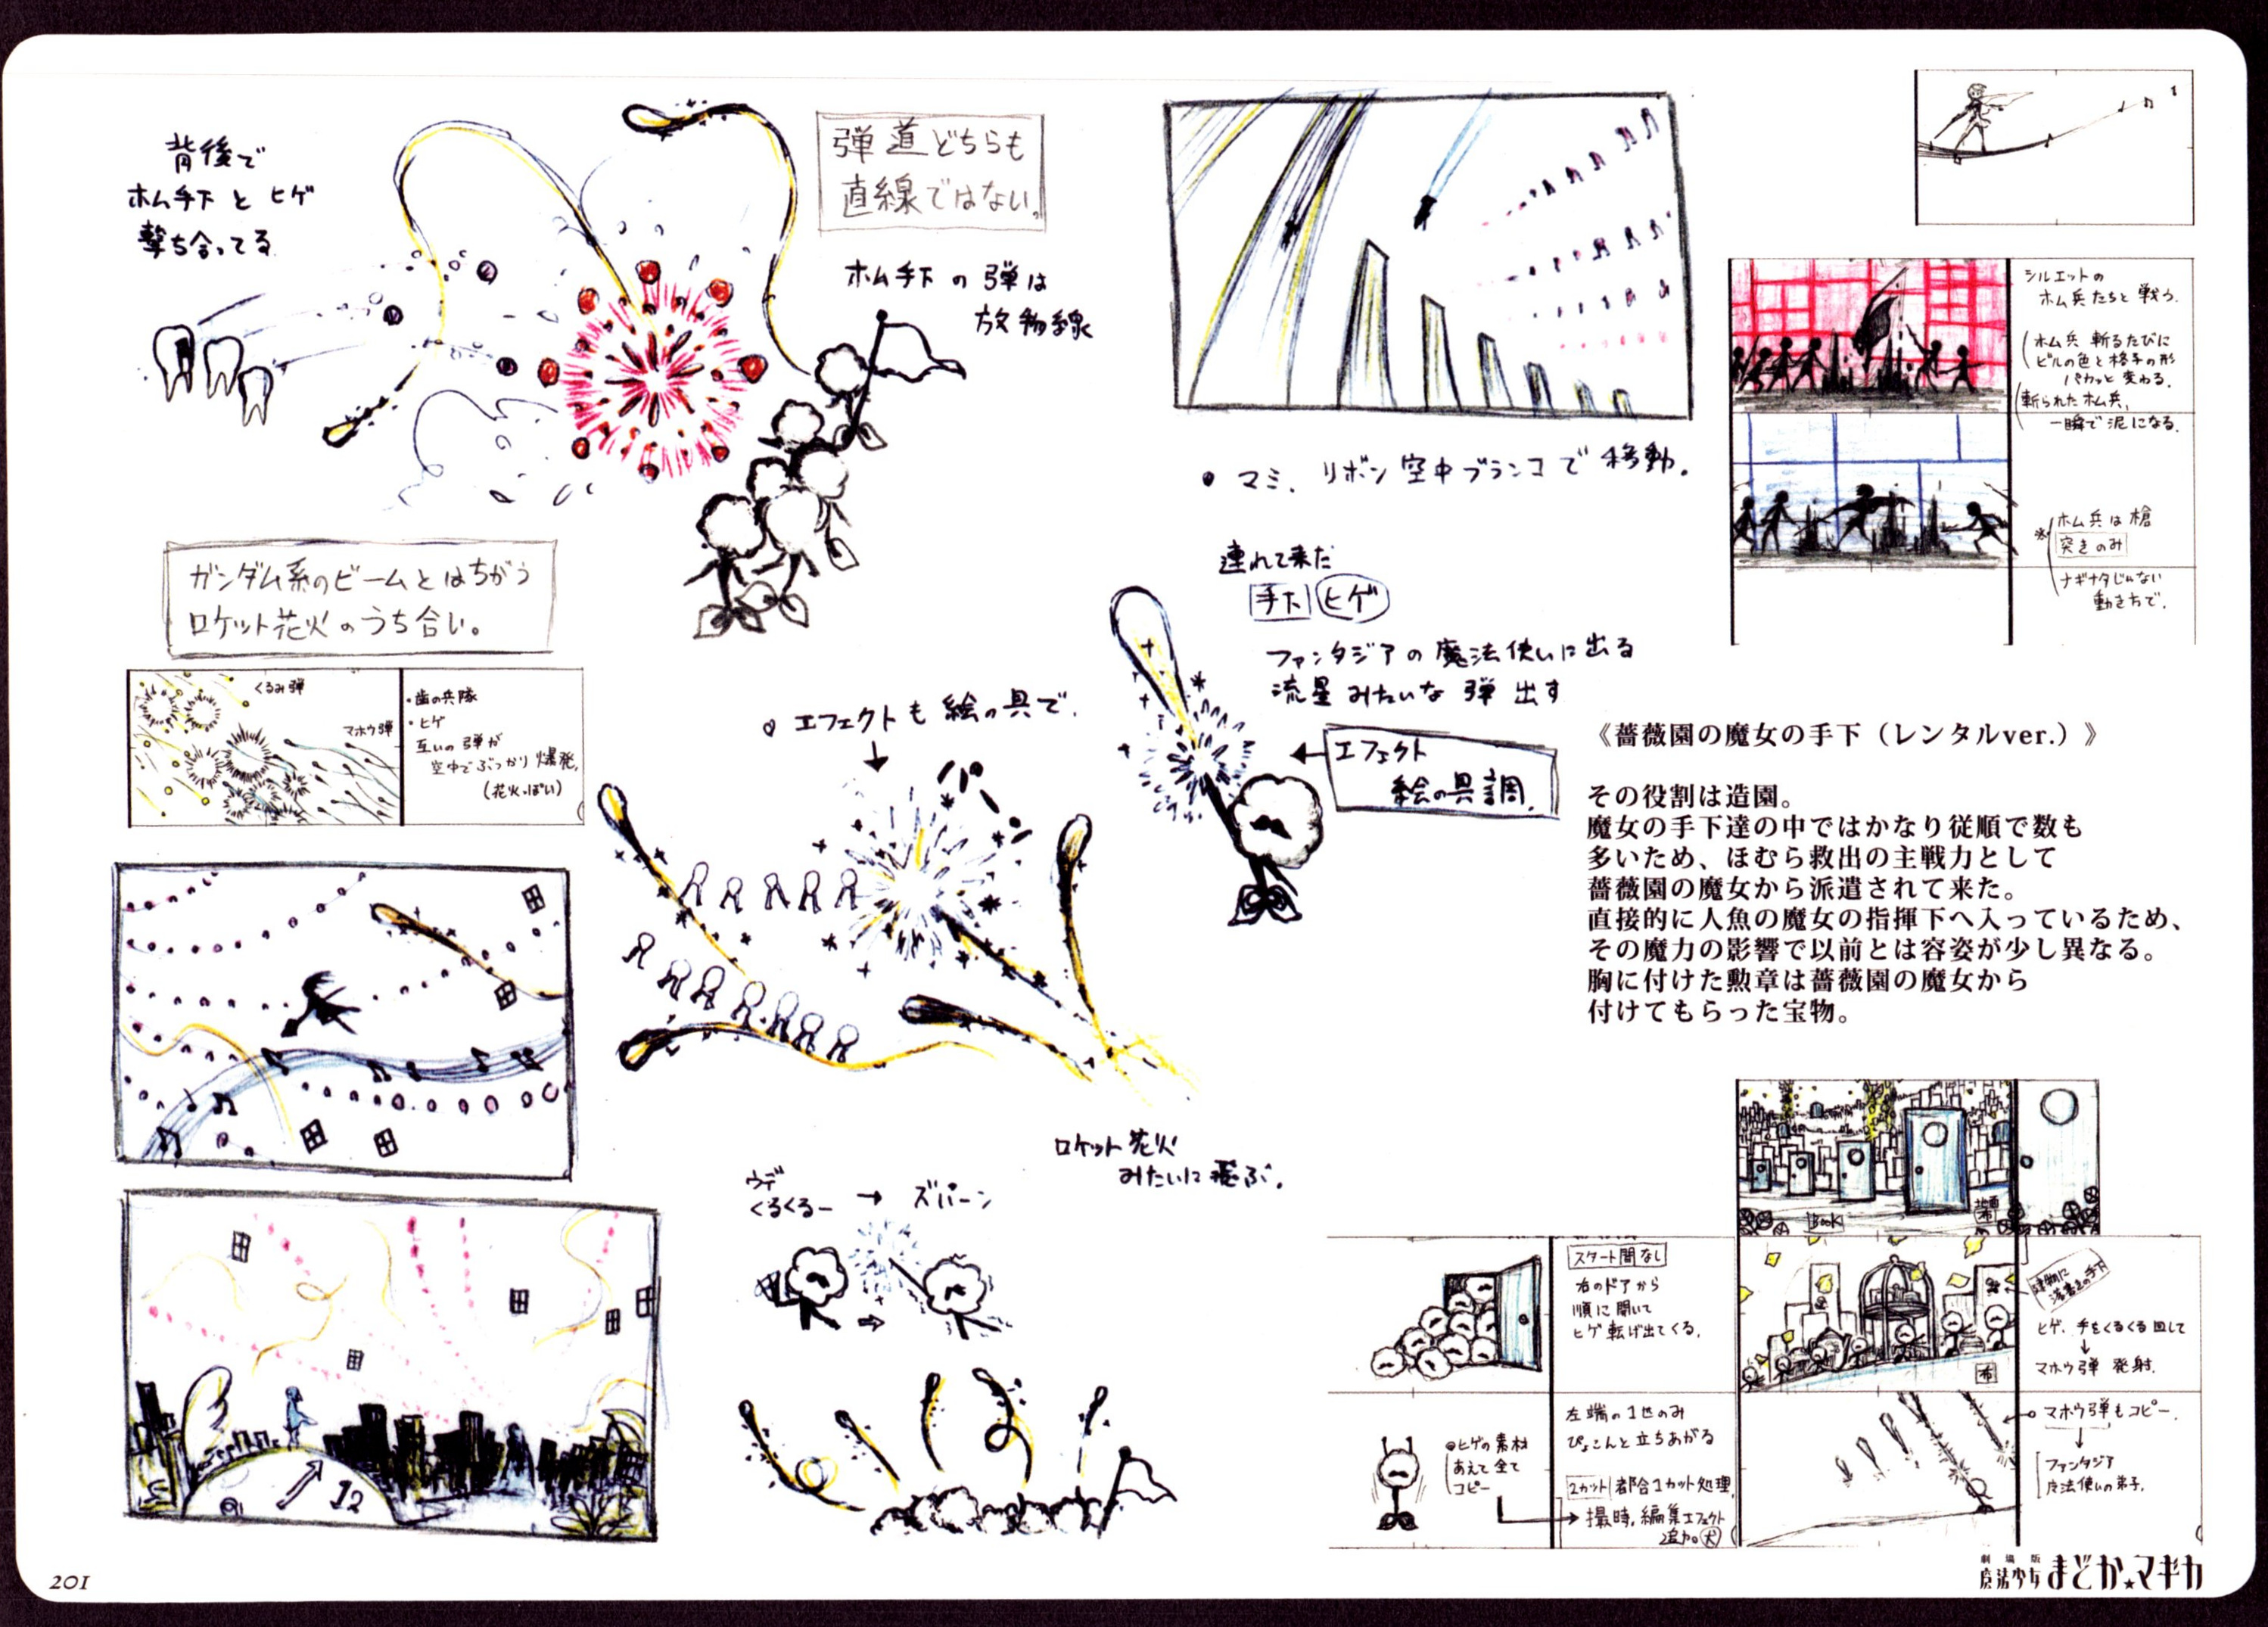 背後で
ホム手下とヒゲ
撃ち合ってる
弾道どちらも
直線ではない。
ホム手下の弾は
放物線
ガンダム系のビームとはちがう
ロケット花火のうち合い。
くるみ弾
マホウ弾
・歯の兵隊
・ヒゲ
互いの弾が
空中でぶつかり爆発。
(花火っぽい)
エフェクトも絵の具で。
ロケット花火
みたいに飛ぶ。
ウデ
くるくるー
→ ズパーン
12
・マミ、リボン空中ブランコで移動。
連れて来た
手下 ヒゲ
ファンタジアの魔法使いに出る
流星みたいな弾出す
エフェクト
絵の具調。
シルエットの
ホム兵たちと戦う。
ホム兵斬るたびに
ビルの色と格子の形
パカッと変わる。
斬られたホム兵、
一瞬で泥になる。
※ホム兵は槍
突きのみ
ナギナタじゃない
動きかたで。
《薔薇園の魔女の手下（レンタルver.）》
その役割は造園。
魔女の手下達の中ではかなり従順で数も
多いため、ほむら救出の主戦力として
薔薇園の魔女から派遣されて来た。
直接的に人魚の魔女の指揮下へ入っているため、
その魔力の影響で以前とは容姿が少し異なる。
胸に付けた勲章は薔薇園の魔女から
付けてもらった宝物。
BOOK
布
スタート間なし
右のドアから
順に開いて
ヒゲ転げ出てくる。
建物に
落書きの手下
ヒゲ、手をくるくる回して
↓
マホウ弾 発射。
布
左端の1匹のみ
ぴょこんと立ちあがる
ヒゲの素材
あえて全て
コピー
2カット 都合1カット処理。
撮時、編集エフェクト
追加。
マホウ弾もコピー。
↓
ファンタジア
魔法使いの弟子。
201
劇場版
魔法少女まどか★マギカ